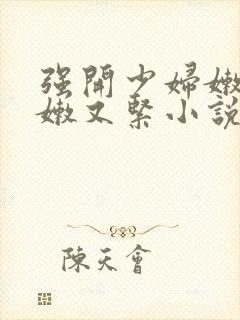 强開少婦嫩
嫩又緊小說
陳天會